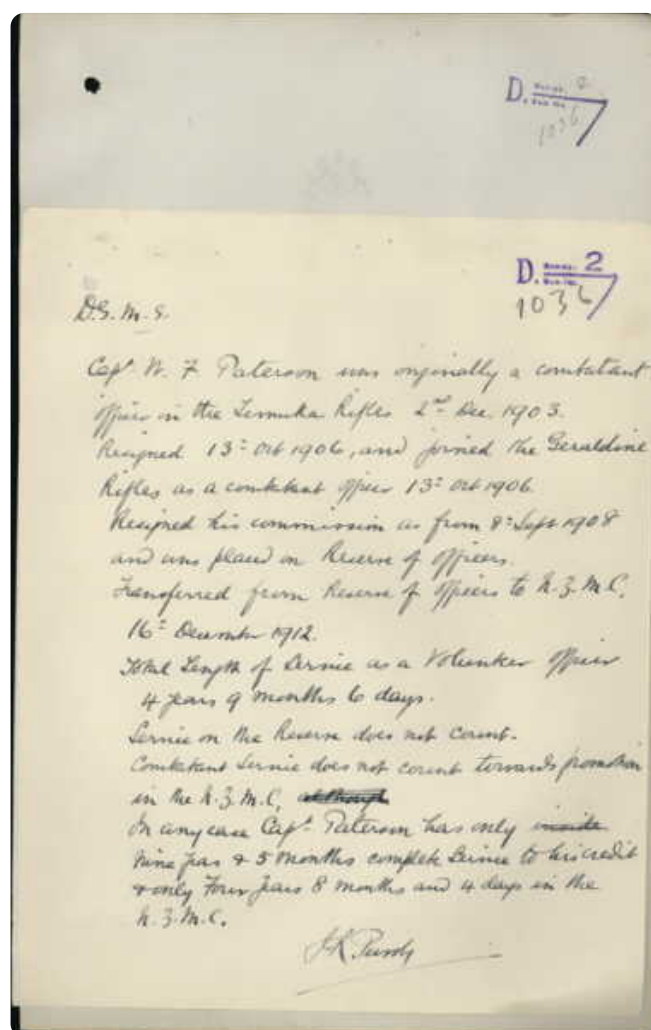 D.
1036
D. 2
1036
D.G.M.S.
Capt W. F Paterson was originally a combatant
officer in the Temuka Rifles 2nd Dec. 1903.
Resigned 13th Oct 1906, and joined the Geraldine
Rifles as a combatant officer 13th Oct 1906.
Resigned his commission as from 8th Sept 1908
and was placed on Reserve of Officers.
Transferred from Reserve of Officers to N.Z.M.C.
16th December 1912.
Total Length of Service as a Volunteer Officer
4 years 9 months 6 days.
Service on the Reserve does not count.
Combatant Service does not count towards promotion
in the N.Z.M.C, although
In any case Capt. Paterson has only inside
nine years & 5 months complete Service to his credit
& only Four years 8 months and 4 days in the
N.Z.M.C.